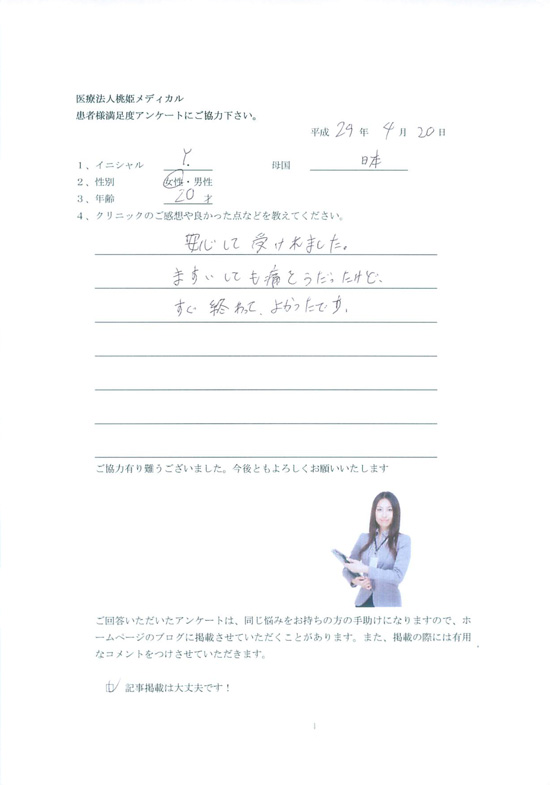 医療法人桃姫メディカル
患者様満足度アンケートにご協力下さい。
平成 29 年 4 月 20 日
1、イニシャル Y. 母国 日本
2、性別 女性・男性
3、年齢 20 才
4、クリニックのご感想や良かった点などを教えてください。
安心して受けれました。
ますいしても痛そうだったけど、
すぐ終わって、よかったです。
ご協力有り難うございました。今後ともよろしくお願いいたします
ご回答いただいたアンケートは、同じ悩みをお持ちの方の手助けになりますので、ホ
ームページのブログに掲載させていただくことがあります。また、掲載の際には有用
なコメントをつけさせていただきます。
☑ 記事掲載は大丈夫です！
1